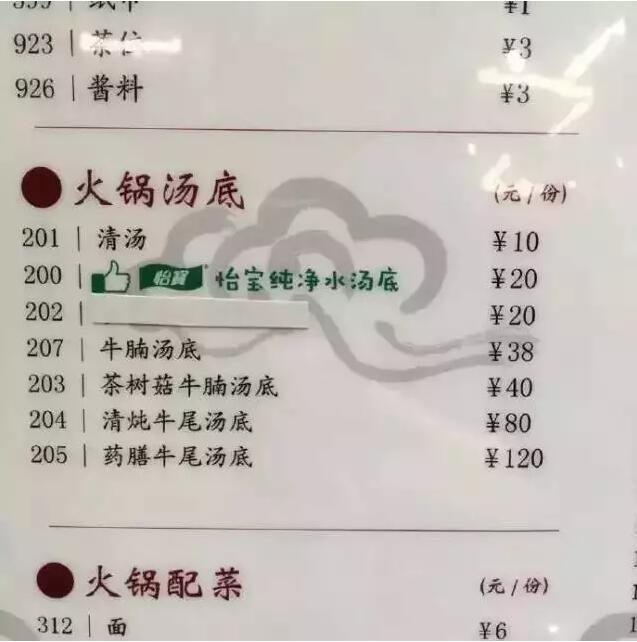 399 | 纸巾 ¥1
923 | 茶位 ¥3
926 | 酱料 ¥3
火锅汤底 (元/份)
201 | 清汤 ¥10
200 | 怡寶 怡宝纯净水汤底 ¥20
202 | ¥20
207 | 牛腩汤底 ¥38
203 | 茶树菇牛腩汤底 ¥40
204 | 清炖牛尾汤底 ¥80
205 | 药膳牛尾汤底 ¥120
火锅配菜 (元/份)
312 | 面 ¥6